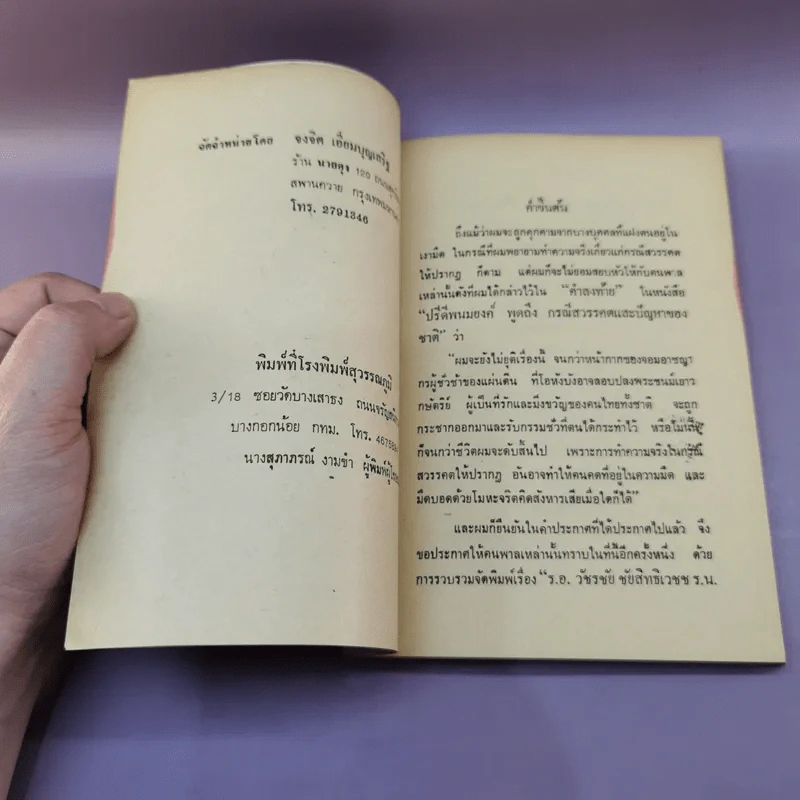 จัดจำหน่ายโดย จงจิต เอี่ยมบุญเสริฐ
ร้าน นายดุง 120
สพานควาย กรุงเทพมหานคร
โทร. 2791346
พิมพ์ที่โรงพิมพ์สุวรรณภูมิ
3/18 ซอยวัดบางเสาธง ถนนจรัญสนิท
บางกอกน้อย กทม. โทร.
นางสุภาภรณ์ งามขำ ผู้พิมพ์ผู้โฆษณา
คำขึ้นต้น
ถึงแม้ว่าผมจะถูกคุกคามจากบางบุคคลที่แฝงตนอยู่ใน
เงามืด ในกรณีที่ผมพยายามทำความจริงเกี่ยวแก่กรณีสวรรคต
ให้ปรากฏ ก็ตาม แต่ผมก็จะไม่ยอมสยบหัวให้กับคนพาล
เหล่านั้นดังที่ผมได้กล่าวไว้ใน “คำลงท้าย” ในหนังสือ
“ปรีดีพนมยงค์ พูดถึง กรณีสวรรคตและปัญหาของ
ชาติ” ว่า
“ผมจะยังไม่ยุติเรื่องนี้ จนกว่าหน้ากากของจอมอาชญา
กรผู้ชั่วช้าของแผ่นดิน ที่โอหังบังอาจลอบปลงพระชนม์เยาว
กษัตริย์ ผู้เป็นที่รักและมิ่งขวัญของคนไทยทั้งชาติ จะถูก
กระชากออกมาและรับกรรมชั่วที่ตนได้กระทำไว้ หรือไม่นั้น
ก็จนกว่าชีวิตผมจะดับสิ้นไป เพราะการทำความจริงในกรณี
สวรรคตให้ปรากฏ อันอาจทำให้คนคดที่อยู่ในความมืด และ
มืดบอดด้วยโมหะจริตคิดสังหารเสียเมื่อใดก็ได้”
และผมก็ยืนยันในคำประกาศที่ได้ประกาศไปแล้ว จึง
ขอประกาศให้คนพาลเหล่านั้นทราบในที่นี้อีกครั้งหนึ่ง ด้วย
การรวบรวมจัดพิมพ์เรื่อง “ร.อ. วัชรชัย ชัยสิทธิเวชช ร.น.